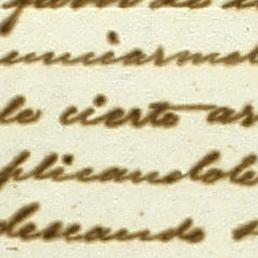 unciarmel
le cierto ar
plicandole
deseando s